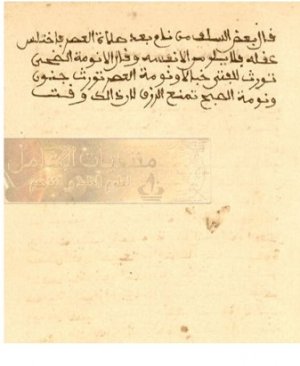 فال بعض السلف من نام بعد صلاة العصر فاختلس
عفله فلا يلومن الا نفسه وفال ان نومة الضحى
تورث للفتى خبالا ونومة العصر تورث جنون
ونومة الصبح تمنع الرزق لان ذالك وفت
منتديات